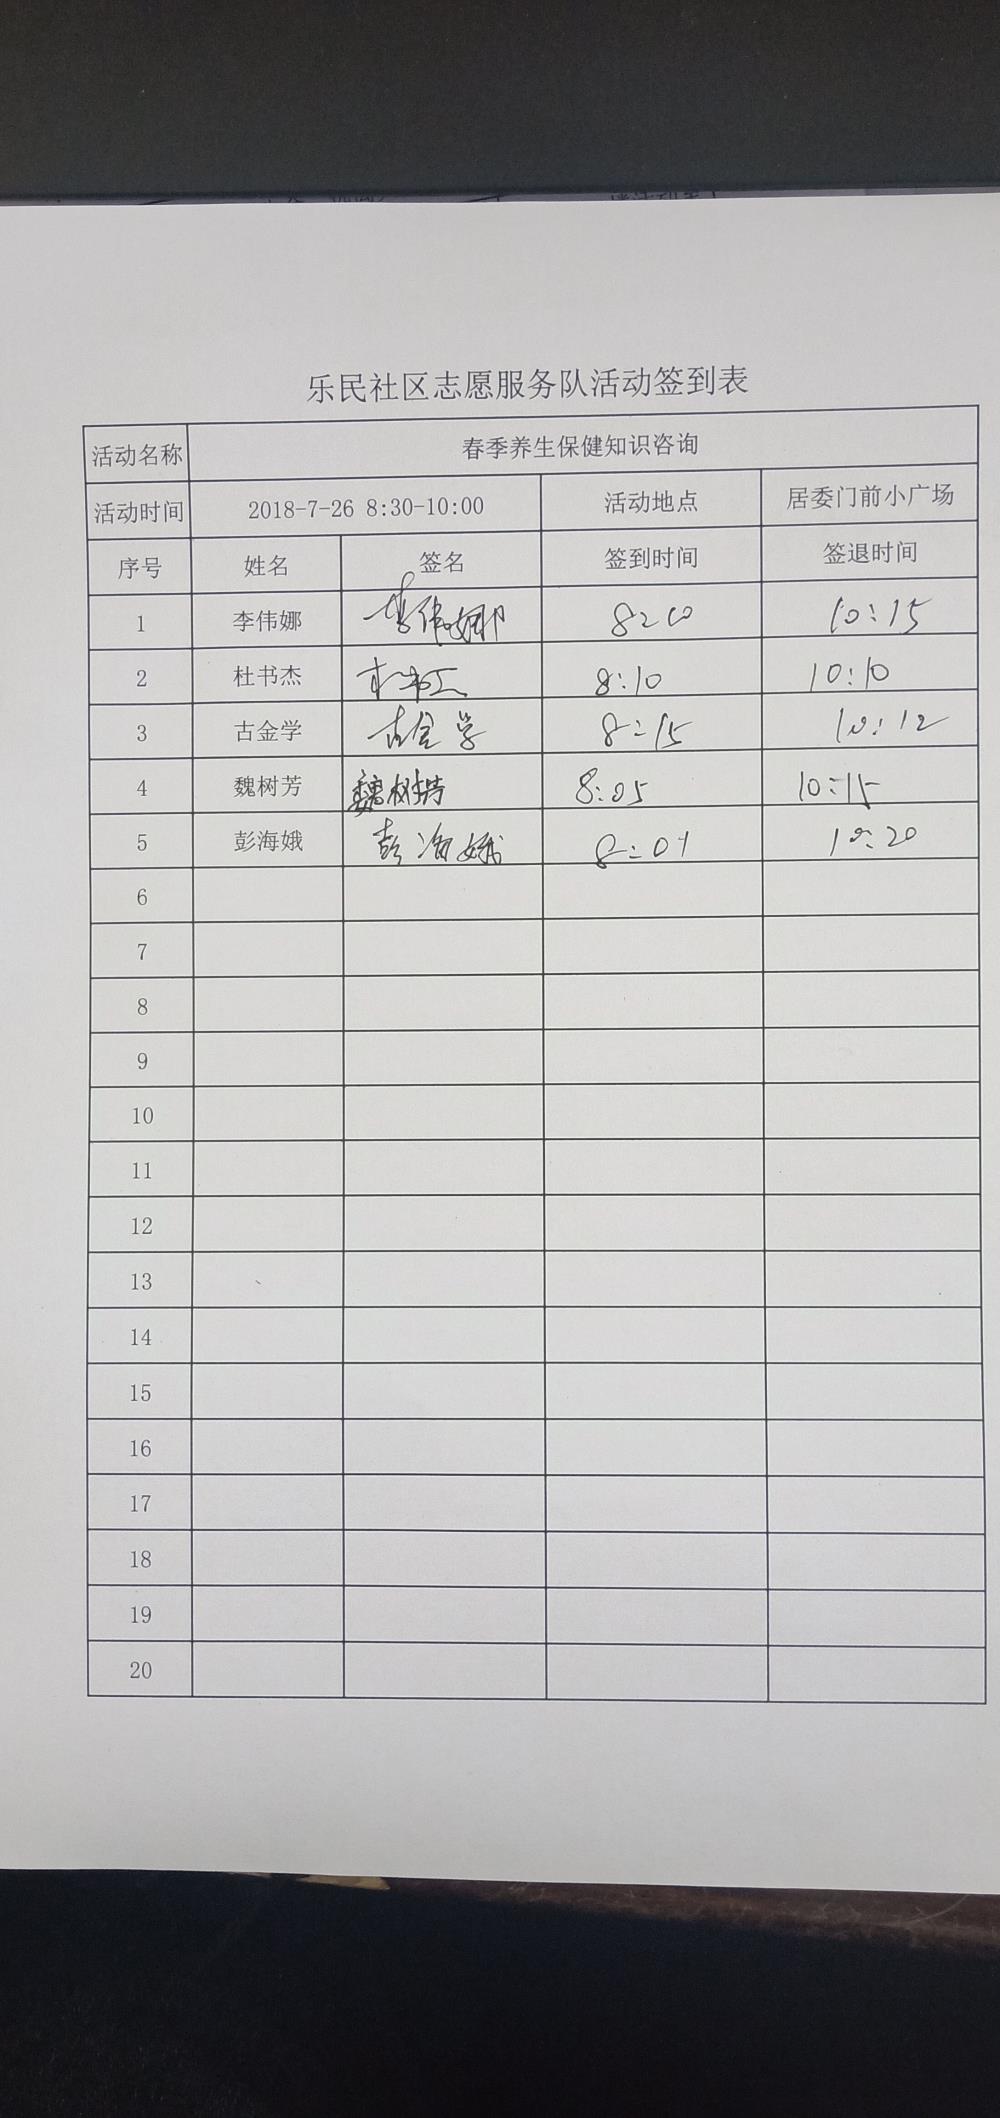 乐民社区志愿服务队活动签到表
活动名称 春季养生保健知识咨询
活动时间 2018-7-26 8:30-10:00 活动地点 居委门前小广场
序号 姓名 签名 签到时间 签退时间
1 李伟娜 李伟娜 10:15
2 杜书杰 杜书杰 8:10 10:10
3 古金学 古金学 8:15 10:12
4 魏树芳 魏树芳 8:05 10:15
5 彭海娥 彭海娥 10:20
6
7
8
9
10
11
12
13
14
15
16
17
18
19
20